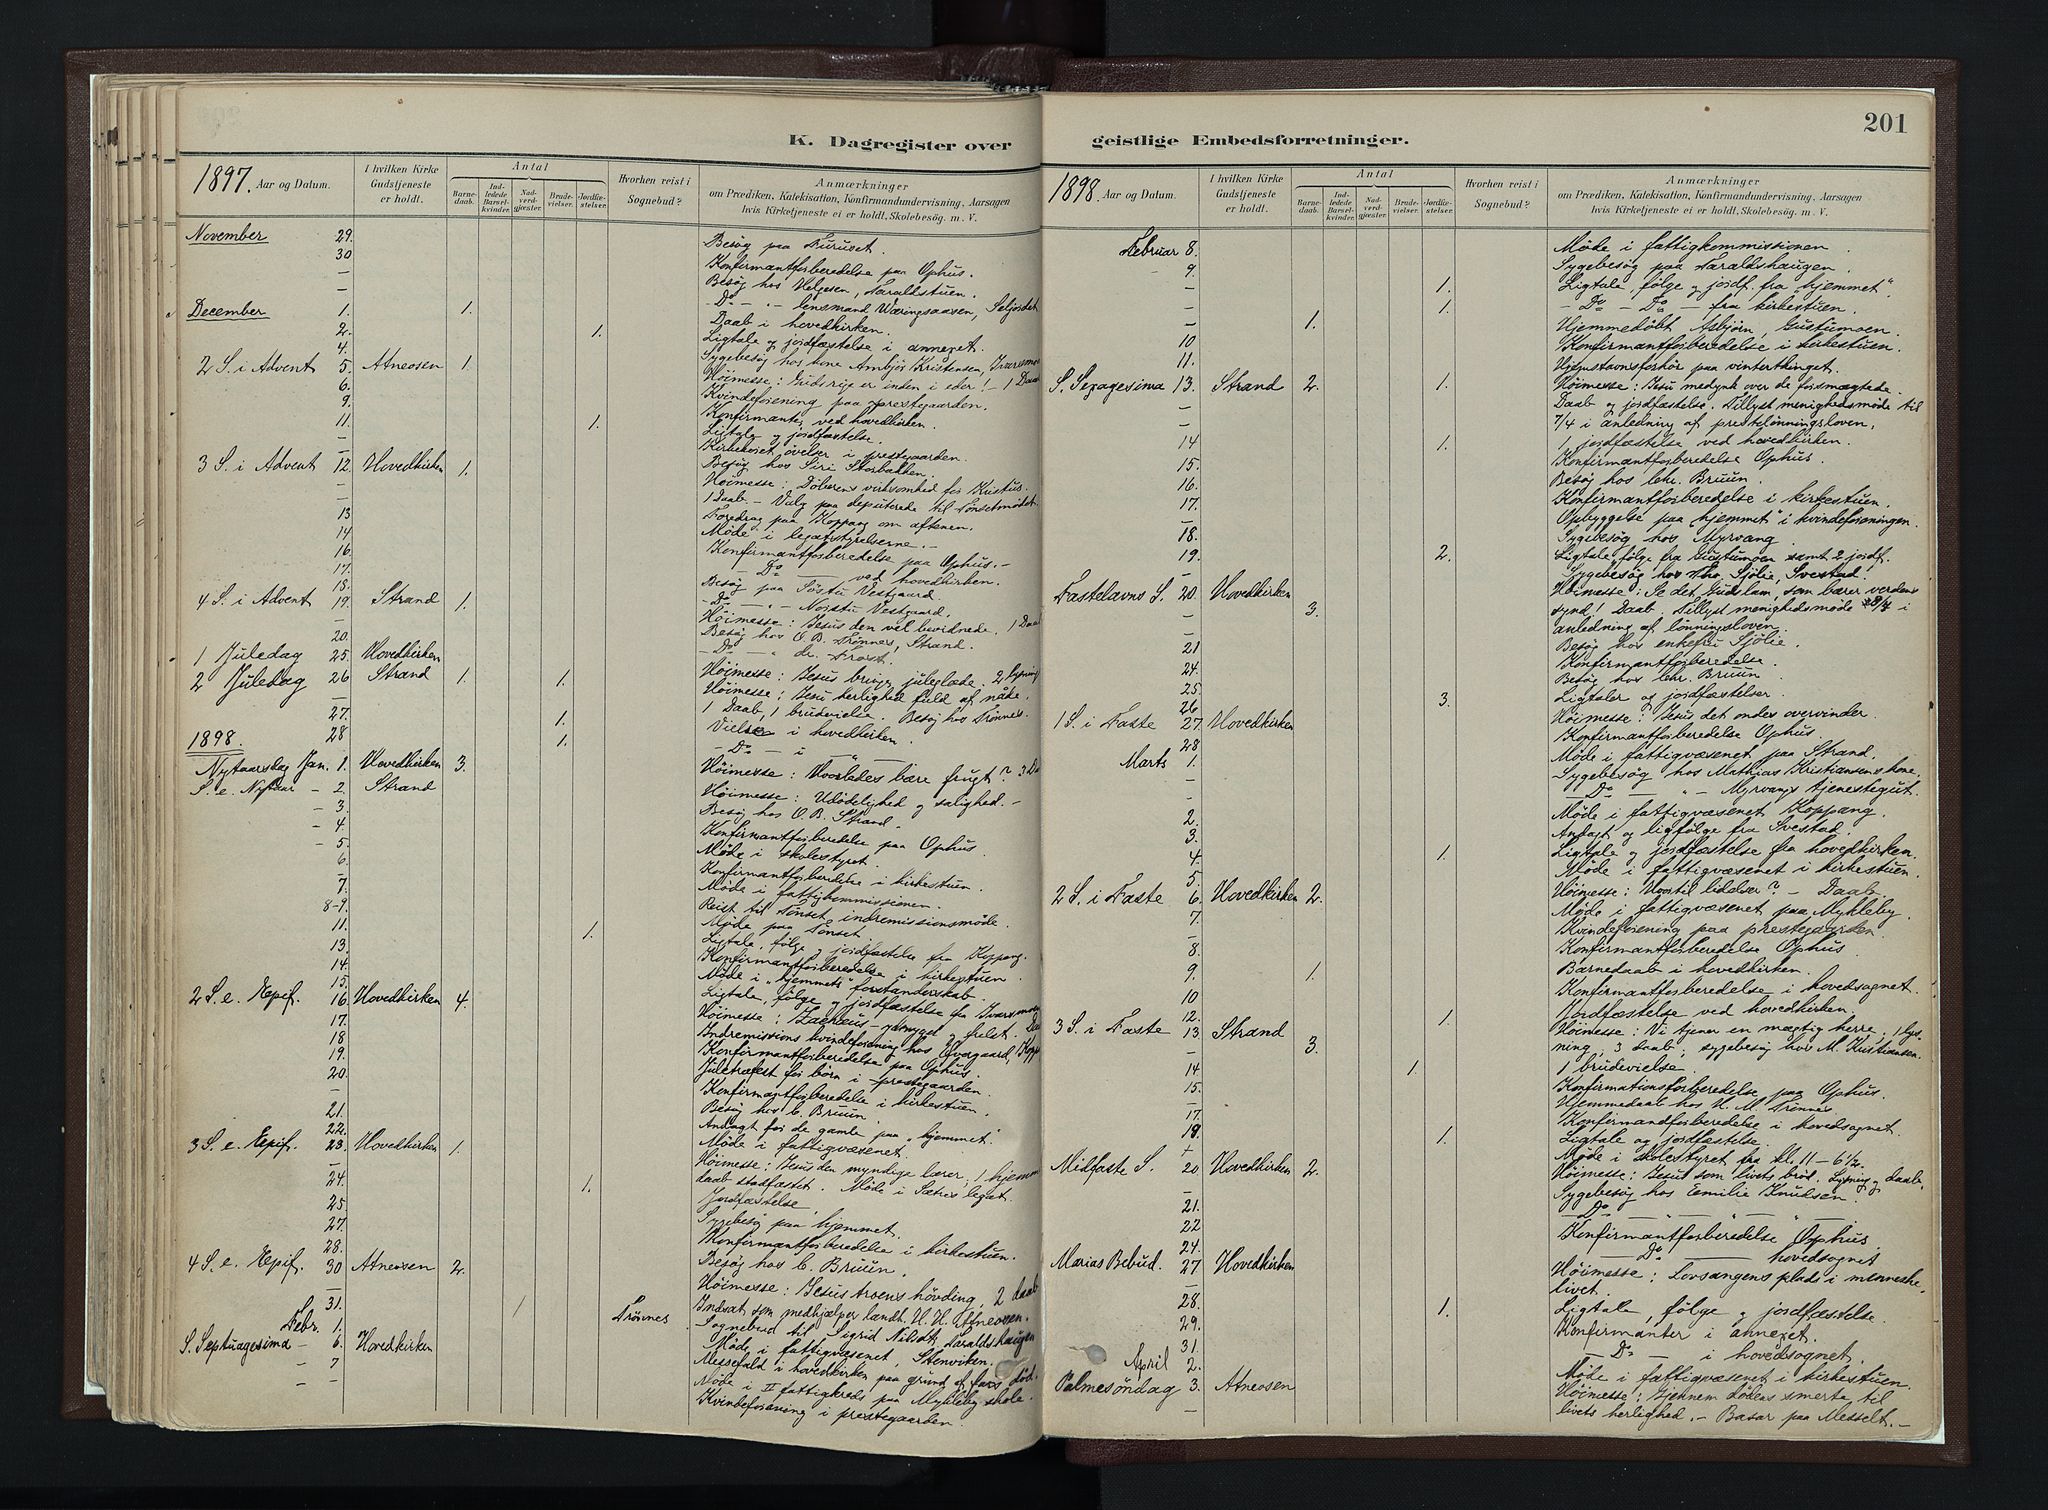 K. Dagregister over
1897. Aar og Datum.
I hvilken Kirke Gudstjeneste er holdt.
Antal
Barnedaab.
Indledede Barselkvinder.
Nadverdgjæster.
Brudevielser.
Jordfæstelser.
Hvorhen reist i Sognebud?
Anmærkninger
om Prædiken, Katekisation, Konfirmandundervisning, Aarsagen
hvis Kirketjeneste ei er holdt, Skolebesøg. m. V.
November 29. Besøg paa Furuset.
30 Konfirmantforberedelse paa Ophus.
— Besøg hos Helgesen, Taraldstuen.
— Do - " - lensmand Wæringsaasen, Seljordet
December 1. 1. Daab i hovedkirken.
2. 1. Ligtale og jordfæstelse i annexet.
4. Sygebesøg hos kone Ambjør Kristensen, Ivarsmo
2 S. i Advent 5. Atneosen 1. Höimesse: Guds rige er inden i eder! - 1 Daab
6. Kvindeforening paa prestegaarden.
9. Konfirmanter ved hovedkirken.
11. 1. Ligtale og jordfæstelse.
— Kirkekoret øvelser i prestegaarden.
Besøg hos Siri Storbakken.
3 S. i Advent 12. Hovedkirken 1. Höimesse: Döberens virksomhed for Kristus.
— 1 Daab - Valg paa deputerede til Tönsetmödet.
— Foredrag paa Koppang om aftenen.
13 Møde i legatstyrelserne. -
14 Konfirmantforberedelse paa Ophus. -
16. - Do - ved hovedkirken.
17. Besøg paa Söstu Vestgaard.
18. - Do - " - Norstu Vestgaard.
4 S. i Advent 19. Strand 1. Höimesse: Jesus den vel bevidnede. 1 Daab
— Besøg hos O. B. Trønnes, Strand.
20. - Do - " dr. Frost.
1 Juledag 25 Hovedkirken Höimesse: Jesus bringer juleglæde. 2 lysning
2 Juledag 26 Strand 1. 1. Höimesse: Jesu herlighed fuld af nåde.
— 1 Daab, 1 brudevielse. Besøg hos Trønnes.
27. 1. Vielse i hovedkirken.
28 1. - Do - i - " -
1898.
Nytaarsdag Jan. 1. Hovedkirken 3. Höimesse: Hvorledes bære frugt? 3 Da
S. e. Nytaar - 2. Strand Höimesse: Udödelighed og salighed. -
- 3. Besøg hos O. B. Strand.
- 4. Konfirmantforberedelse paa Ophus.
- 5. Møde i skolestyret.
6. Konfirmantforberedelse i kirkestuen.
7. Møde i fattigkommissionen.
8-9. Reist til Tönset, indremissionsmöde.
11. Møde paa Tönset
13. 1. Ligtale, følge og jordfæstelse fra Koppang.
14. Konfirmantforberedelse i kirkestuen.
Møde i "hjemmets" forstanderskab.
15. Ligtale, følge og jordfæstelse fra Ivarsmoen
2 S. e. Epif. 16. Hovedkirken 4. Höimesse: Zachæus - og frelst. Daa
17. Indremissions kvindeforening hos Øvergaard, Kopp
18 Konfirmantforberedelse paa Ophus.
19. Juletræfest for børn i prestegaarden.
20. Konfirmantforberedelse i kirkestuen.
— Besøg hos C. Bruun
21. Andagt for de gamle paa "hjemmet".
22. Møde i fattigvæsenet.
3 S. e. Epif. 23. Hovedkirken 1. Höimesse: Jesus den myndige lærer, 1 hjemme
— daab stadfæstet. Møde i Sætres legat.
24. 1. Jordfæstelse
25. Sygebesøg paa "hjemmet.
27. Konfirmantforberedelse i kirkestuen.
28. Besøg hos C. Bruun.
4 S. e. Epif. 30 Atneosen 2. Höimesse: Jesus troens hövding. 2 daab
Indsat som medhjælper landh. H. H. Atneosen.
31. / Trønnes Sognebud til Sigrid Nilsdt. Taraldshaugen
Febr. 1. Møde i fattigvæsenet, Stenviken.
S. Septuagesima - 6. Hovedkirken Messefald i hovedkirken paa grund af fars död.
- 7 Møde i II fattigkreds paa Mykleby skole.
- - Kvindeforening i prestegaarden.
geistlige Embedsforretninger.
201
1898. Aar og Datum.
I hvilken Kirke Gudstjeneste er holdt.
Antal
Barnedaab.
Indledede Barselkvinder.
Nadverdgjæster.
Brudevielser.
Jordfæstelser.
Hvorhen reist i Sognebud?
Anmærkninger
om Prædiken, Katekisation, Konfirmandundervisning, Aarsagen
hvis Kirketjeneste ei er holdt, Skolebesøg. m. V.
Februar 8. Møde i fattigkommissionen
9. Sygebesøg paa Taraldshaugen.
— 1. Ligtale, følge og jordf. fra "hjemmet".
— 1. - Do - Do - fra kirkestuen.
— 1. Hjemmedöbt Asbjörn, Gustumoen.
10 Konfirmantforberedelse i kirkestuen.
11. Vidnestavnsforhör paa vintertinget.
S. Sexagesima 13. Strand 2. 1. Höimesse: Jesu medynk over de forsmægtede.
— Daab og jordfæstelse. Tillyst menighedsmøde til
7/4 i anledning af prestelønningsloven.
14 1. 1 jordfæstelse ved hovedkirken.
15. Konfirmantforberedelse Ophus.
16. Besøg hos lehr. Bruun.
17. Konfirmantforberedelse i kirkestuen.
— Opbyggelse paa "hjemmet" i kvindeforeningen.
18. Sygebesøg hos Myrvang.
19. 2. Ligtale, følge fra Gustumoen samt 2 jordf.
— Sygebesøg hos Tho. Sjölie, Svestad.
Fastelavns S. 20. Hovedkirken 3. Höimesse: Se det Guds lam, som bærer verdens
— synd! Daab. Tillyst menighedsmøde 8/4 i
— anledning af lønningsloven.
— Besøg hos enkefru Sjölie.
21 Konfirmantforberedelse.
24. Besøg hos lehr. Bruun
25 3. Ligtaler og jordfæstelser.
26
1 S. i Faste 27. Hovedkirken Höimesse: Jesus det ondes overvinder.
28 Konfirmantforberedelse Ophus.
Marts 1. Møde i fattigvæsenet paa Strand.
— Sygebesøg hos Mathias Kristiansens kone.
— - Do - " - Myrvangs tjenestegut.
2. Møde i fattigvæsenet Koppang.
3. Andagt og ligfølge fra Svestad.
4. 1. Ligtale og jordfæstelse fra hovedkirken.
5 Møde i fattigvæsenet i kirkestuen.
2 S. i Faste 6. Hovedkirken 2. Höimesse: Hvortil lidelser? - Daab.
7. Møde i fattigvæsenet paa Mykleby.
— Kvindeforening paa prestegaarden.
8 Konfirmantforberedelse Ophus
9. 1. Barnedaab i hovedkirken.
10 Konfirmantforberedelse i hovedsognet.
12. 1. Jordfæstelse ved hovedkirken.
3 S. i Faste 13. Strand 3. Höimesse: Vi tjener en mægtig herre. 1 lys-
— ning, 3 daab; sygebesøg hos M. Kristiansen.
14 1. 1 brudevielse.
15. Konfirmationsforberedelse paa Ophus.
— Hjemmedaab hos H. M. Trønnes
17. Konfirmandforberedelse i hovedsognet.
19. 1. Ligtale og jordfæstelse.
+ Møde i skolestyret fra kl. 11 - 6 1/2.
Midfaste S. 20 Hovedkirken 2. Höimesse: Jesus som livets bröd. Lysning og daab.
— Sygebesøg hos Emilie Knudsen.
21. - Do - " - " -
22 Konfirmantforberedelse Ophus.
24. Do hovedsognet
Marias Bebud. 27 Hovedkirken Höimesse: Lovsangens plads i menneske-
livet.
28. 1. Ligtale, følge og jordfæstelse.
29. Konfirmanter i annexet.
31. - Do - i hovedsognet.
April 2. Møde i fattigvæsenet i kirkestuen.
Palmesöndag 3. Atneosen Höimesse: Gjennem dödens smerte til
— livets herlighed. - Basar paa Messelt. -